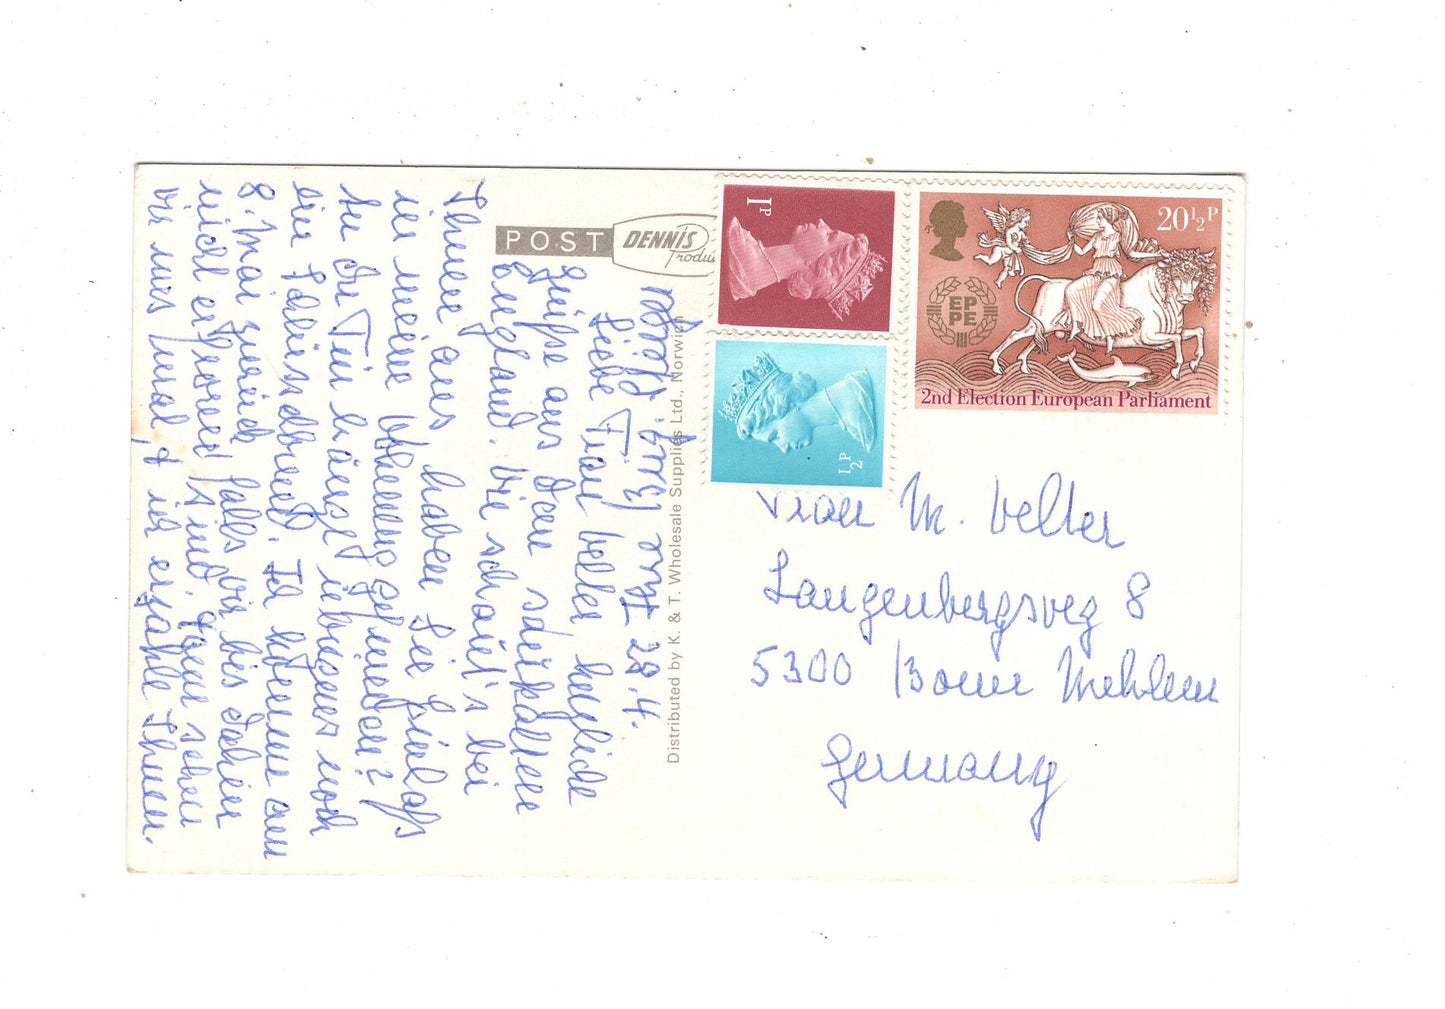 POST
DENNIS
Produc
Distributed by K. & T. Wholesale Supplies Ltd., Norwich
1P
½P
20½P
EP
PE
2nd Election European Parliament
28.4.
Liebe Frau Velter herzliche
Grüße aus dem sehr kalten
England. Wie schaut's bei
Ihnen aus haben Sie
in meine Wohnung gefunden?
An der Tür hängt übrigens noch
ein Schlüsselbund. Ich komme am
8. Mai zurück falls wir bis dahin
nicht erfroren sind, dann sehen
wir uns mal, & ich erzähle Ihnen.
Frau M. Velter
Langenbergsweg 8
5300 Bonn Mehlem
Germany